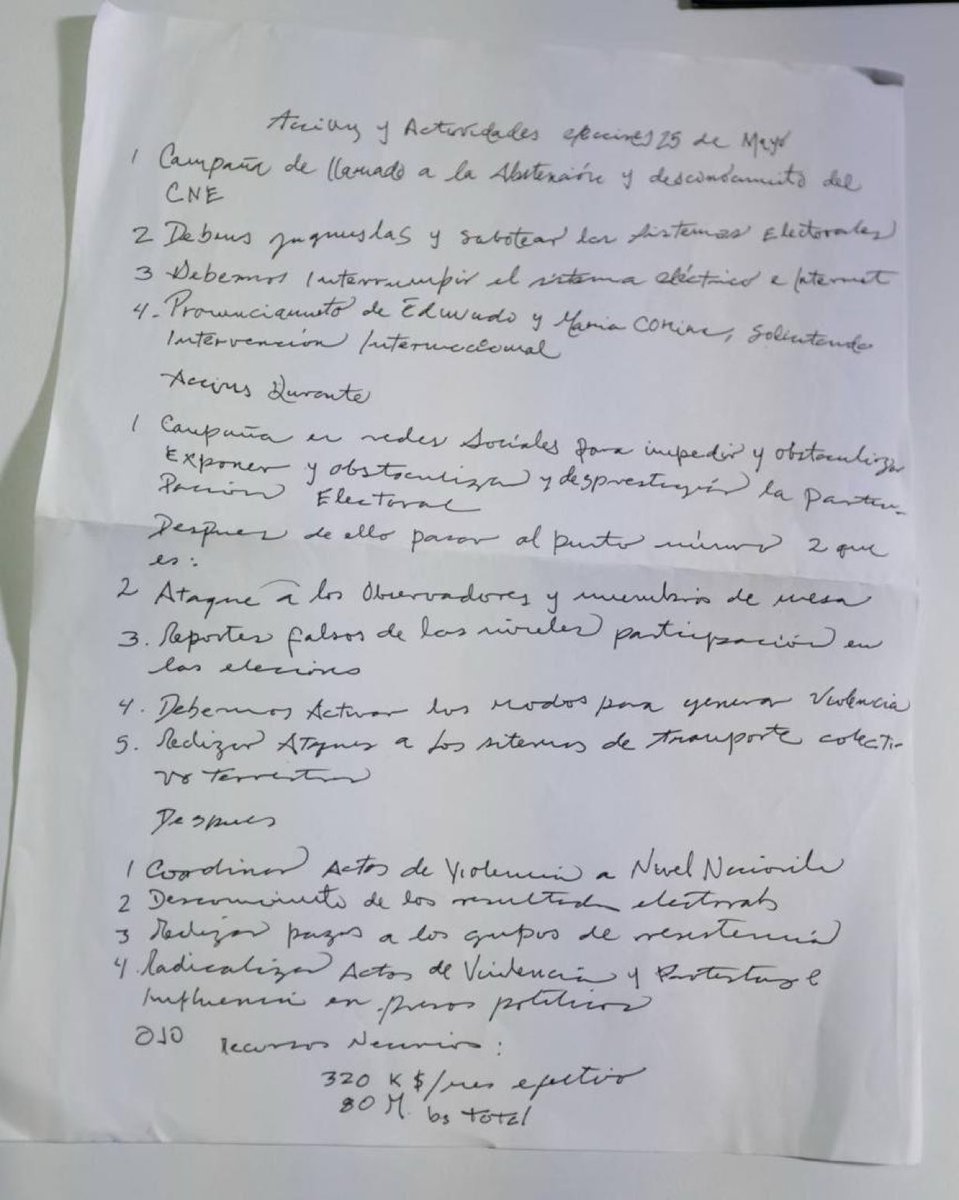 Acciones y Actividades elecciones 25 de Mayo
1 Campaña de llamado a la Abstención y desconocimiento del
CNE
2 Debemos y sabotear los sistemas Electorales
3 Debemos Interrumpir el sistema eléctrico e Internet
4.- Pronunciamiento de Edmundo y Maria CORina, solicitando
Intervención Internacional
Acciones Durante
1 Campaña en redes Sociales para impedir y obstaculizar
Exponer y obstaculizar y desprestigiar la partici-
Pación Electoral
Despues de ello pasar al punto número 2 que
es:
2 Ataque a los Observadores y miembros de mesa
3. Reportes falsos de los niveles participación en
las elecciones
4. Debemos Activar los modos para generar Violencia
5. Realizar Ataques a los sitemas de transporte colecti-
vo terrestre
Despues
1 Coordinar Actos de Violencia a Nivel Nacional
2 Desconocimiento de los resultados electorales
3 Realizar pagos a los grupos de resistencia
4. Radicalizar Actos de Violencia y Protestas e
Influencia en presos politicos
OJO Recursos Necesarios:
320 K $/mes efectivo
80 M. bs total